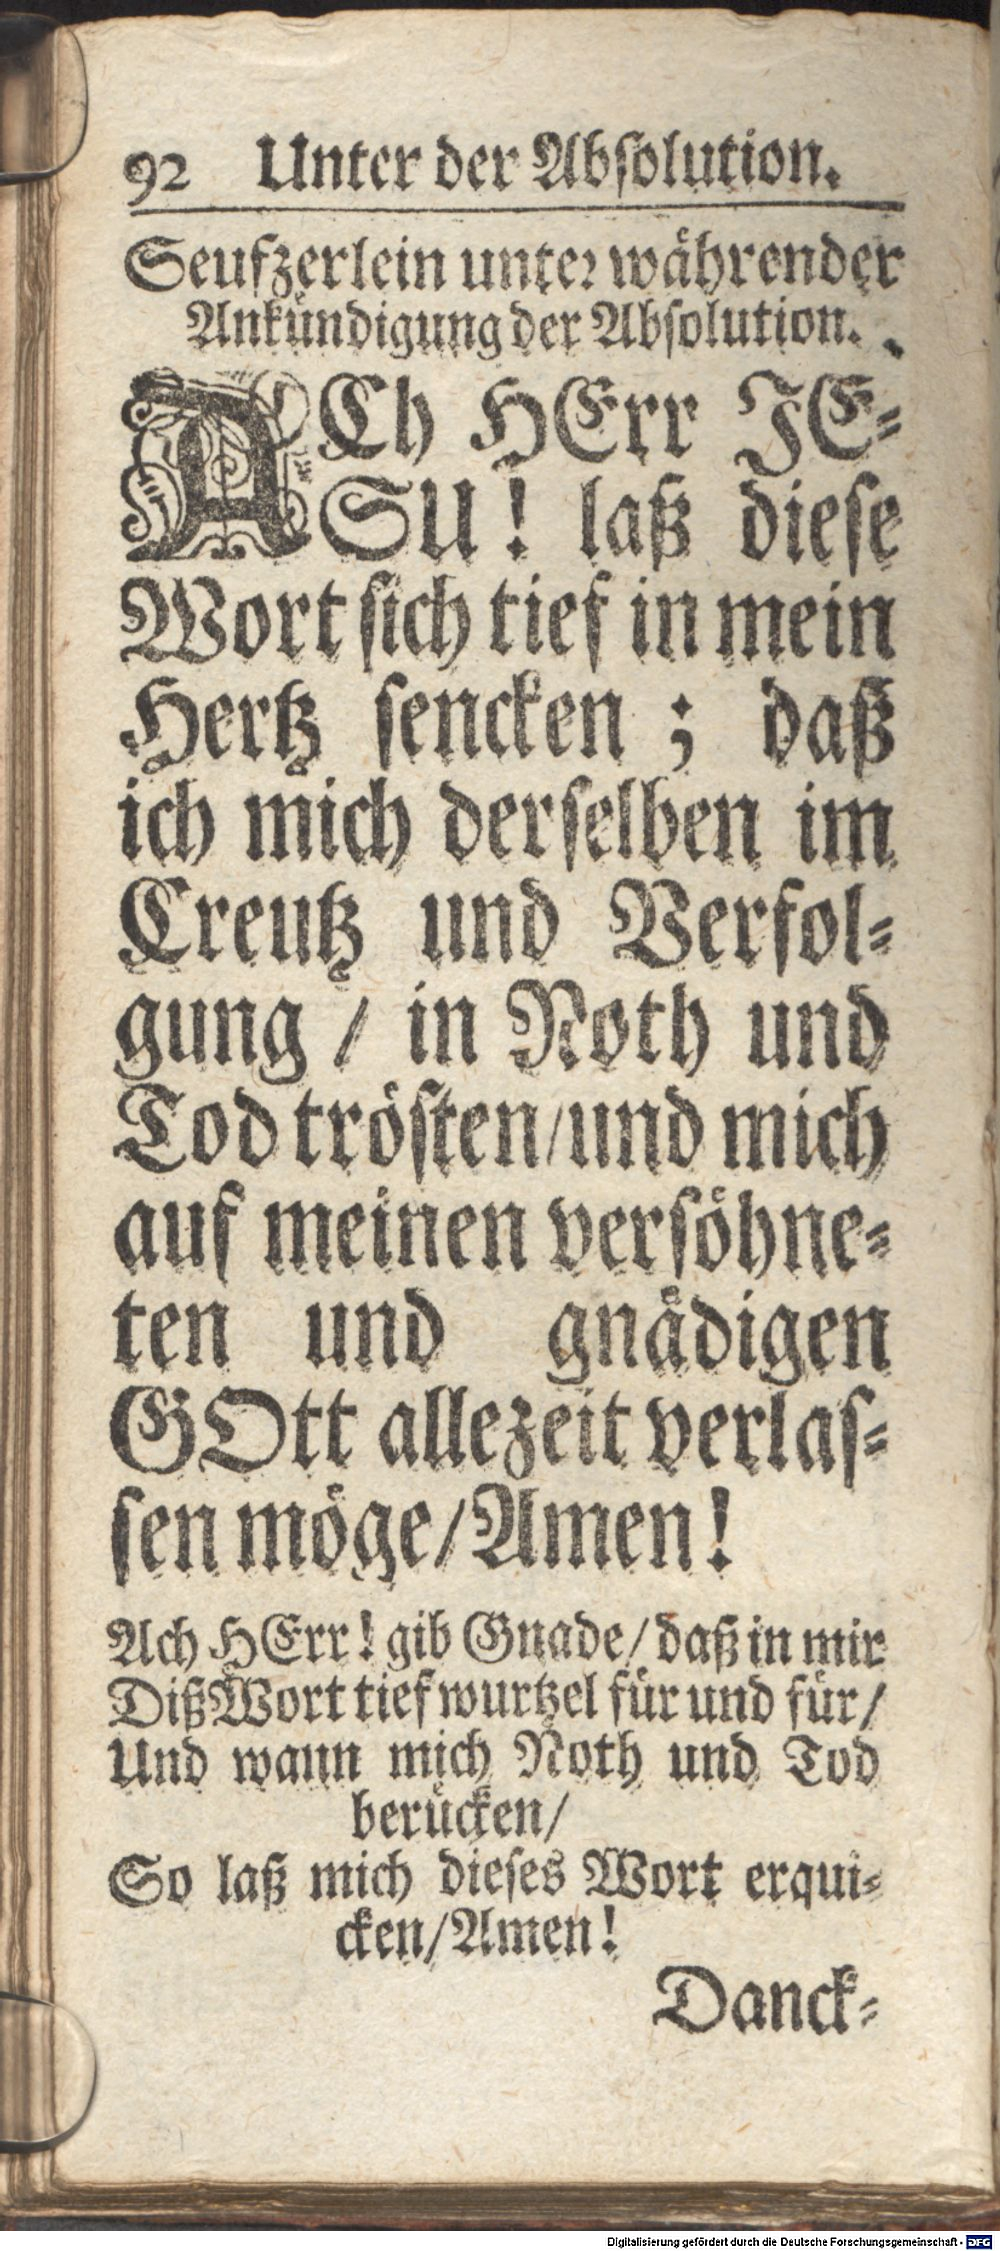 92 Unter der Absolution.
Seufzerlein unter währender
Ankündigung der Absolution.
ACh HErr JE-
SU! laß diese
Wort sich tief in mein
Hertz sencken; daß
ich mich derselben im
Creutz und Verfol-
gung / in Noth und
Tod trösten/und mich
auf meinen versöhne-
ten und gnädigen
GOtt allezeit verlas-
sen möge/Amen!
Ach HErr! gib Gnade/ daß in mir
Diß Wort tief wurtzel für und für/
Und wann mich Noth und Tod
berücken/
So laß mich dieses Wort erqui-
cken/Amen!
Danck-
Digitalisierung gefördert durch die Deutsche Forschungsgemeinschaft - DFG